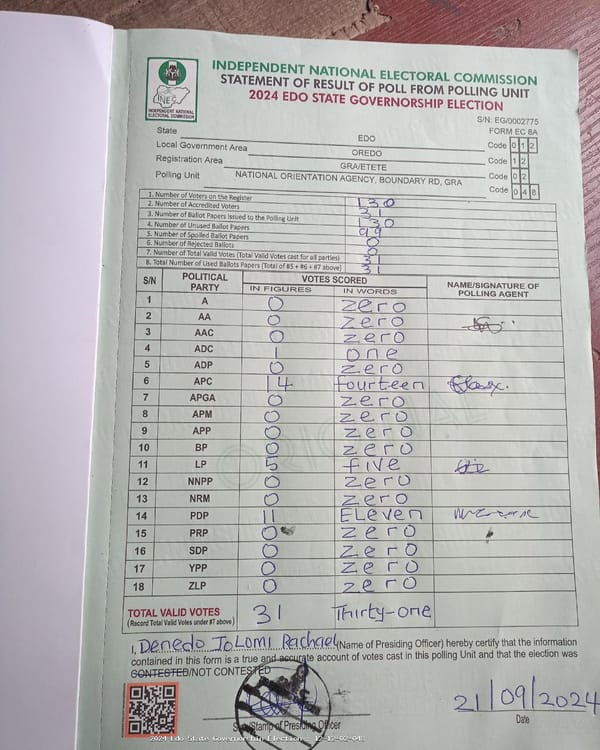 INDEPENDENT NATIONAL ELECTORAL COMMISSION
STATEMENT OF RESULT OF POLL FROM POLLING UNIT
2024 EDO STATE GOVERNORSHIP ELECTION
INEC
INDEPENDENT NATIONAL ELECTORAL COMMISSION
S/N: EG/0002775
FORM EC 8A
State EDO Code 0 1 2
Local Government Area OREDO Code 1 2
Registration Area GRA/ETETE Code 0 2
Polling Unit NATIONAL ORIENTATION AGENCY, BOUNDARY RD, GRA Code 0 4 8
1. Number of Voters on the Register 130
2. Number of Accredited Voters 31
3. Number of Ballot Papers Issued to the Polling Unit 130
4. Number of Unused Ballot Papers 99
5. Number of Spoiled Ballot Papers 0
6. Number of Rejected Ballots 0
7. Number of Total Valid Votes (Total Valid Votes cast for all parties) 31
8. Total Number of Used Ballots Papers (Total of #5 + #6 + #7 above) 31
S/N POLITICAL PARTY VOTES SCORED NAME/SIGNATURE OF POLLING AGENT
IN FIGURES IN WORDS
1 A 0 zero
2 AA 0 zero
3 AAC 0 zero
4 ADC 1 one
5 ADP 0 zero
6 APC 14 fourteen
7 APGA 0 zero
8 APM 0 zero
9 APP 0 zero
10 BP 0 zero
11 LP 5 five
12 NNPP 0 zero
13 NRM 0 zero
14 PDP 11 Eleven
15 PRP 0 zero
16 SDP 0 zero
17 YPP 0 zero
18 ZLP 0 zero
TOTAL VALID VOTES 31 Thirty-one
(Record Total Valid Votes under #7 above)
I, Denedo Jolomi Rachael (Name of Presiding Officer) hereby certify that the information
contained in this form is a true and accurate account of votes cast in this polling Unit and that the election was
CONTESTED/NOT CONTESTED
21/09/2024
Stamp of Presiding Officer Date
2024 Edo State Governorship Election - 12-12-02-048